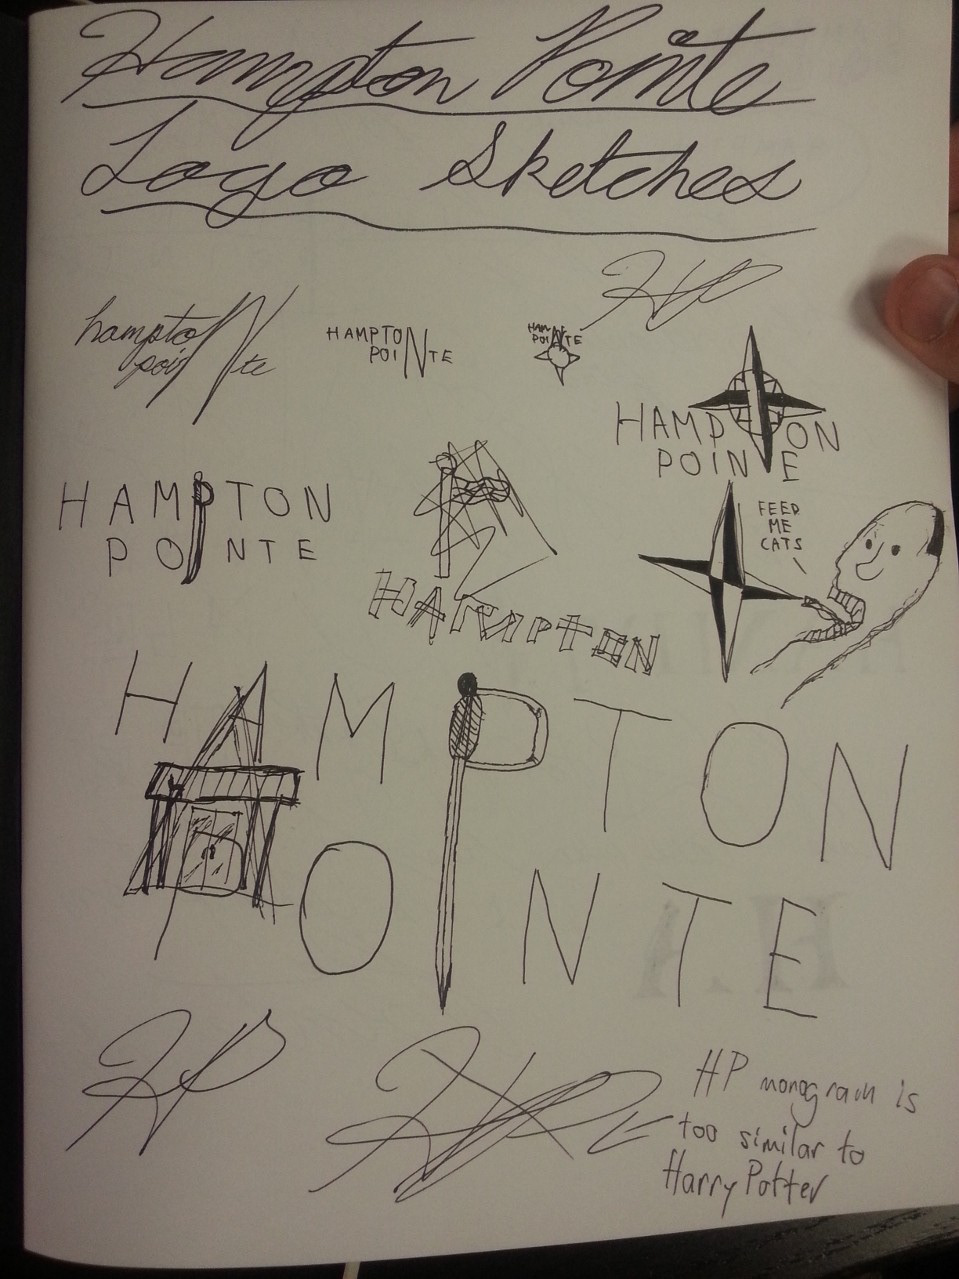 Hampton Pointe
Logo Sketches
HP
hampton
pointe
HAMPTON
POINTE
HAMPTON
POINTE
HAMPTON
POINTE
HAMPTON
POINTE
FEED
ME
CATS
HAMPTON
HAMPTON
POINTE
HP
HP
HP monogram is
too similar to
Harry Potter